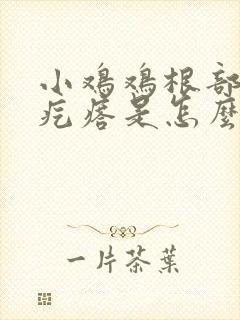 小鸡鸡根部
疙瘩是怎麼
一片茶葉